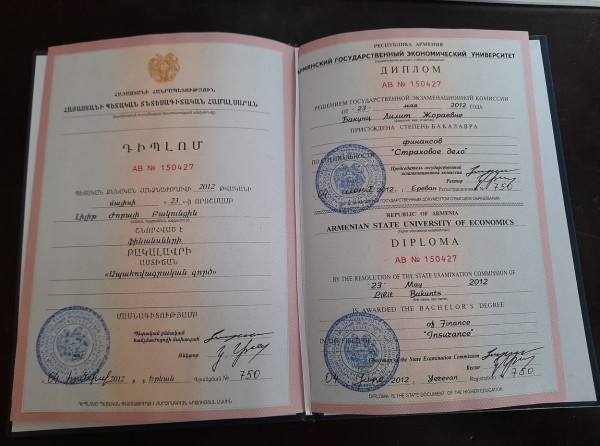 ՀԱՅԱՍՏԱՆԻ ՀԱՆՐԱՊԵՏՈՒԹՅՈՒՆ
ՀԱՅԱՍՏԱՆԻ ՊԵՏԱԿԱՆ ՏՆՏԵՍԱԳԻՏԱԿԱՆ ՀԱՄԱԼՍԱՐԱՆ
ԴԻՊԼՈՄ
АВ № 150427
ՊԵՏԱԿԱՆ ՔՆՆԱԿԱՆ ՀԱՆՁՆԱԺՈՂՈՎԻ 2012 ԹՎԱԿԱՆԻ
մայիսի - 23 -Ի ՈՐՈՇՄԱՄԲ
Լիլիթ Ժորայի Բակունցին
ՇՆՈՐՀՎԱԾ Է
ֆինանսների
ԲԱԿԱԼԱՎՐԻ
ԱՍՏԻՃԱՆ
«Ապահովագրական գործ»
ՄԱՍՆԱԳԻՏՈՒԹՅԱՄԲ
Պետական քննական
հանձնաժողովի նախագահ
Ռեկտոր
04 հունիսի 2012 թ., ք. Երևան Գրանցման № 750
РЕСПУБЛИКА АРМЕНИЯ
АРМЯНСКИЙ ГОСУДАРСТВЕННЫЙ ЭКОНОМИЧЕСКИЙ УНИВЕРСИТЕТ
ДИПЛОМ
АВ № 150427
РЕШЕНИЕМ ГОСУДАРСТВЕННОЙ ЭКЗАМЕНАЦИОННОЙ КОМИССИИ
ОТ - 23 - мая 2012 ГОДА
Бакунц Лилит Жораевне
ПРИСУЖДЕНА СТЕПЕНЬ БАКАЛАВРА
финансов
ПО СПЕЦИАЛЬНОСТИ "Страховое дело"
Председатель государственной
экзаменационной комиссии
Ректор
2012 г., Ереван Регистрационный № 750
REPUBLIC OF ARMENIA
ARMENIAN STATE UNIVERSITY OF ECONOMICS
DIPLOMA
АВ № 150427
BY THE RESOLUTION OF THE STATE EXAMINATION COMMISSION OF
"23" May 2012
Lilit Bakunts
IS AWARDED THE BACHELOR'S DEGREE
of Finance
"Insurance"
Chairman of the State Examination Commission
Rector
04 June 2012, Yerevan Registration № 750
DIPLOMA IS THE STATE DOCUMENT OF THE HIGHER EDUCATION